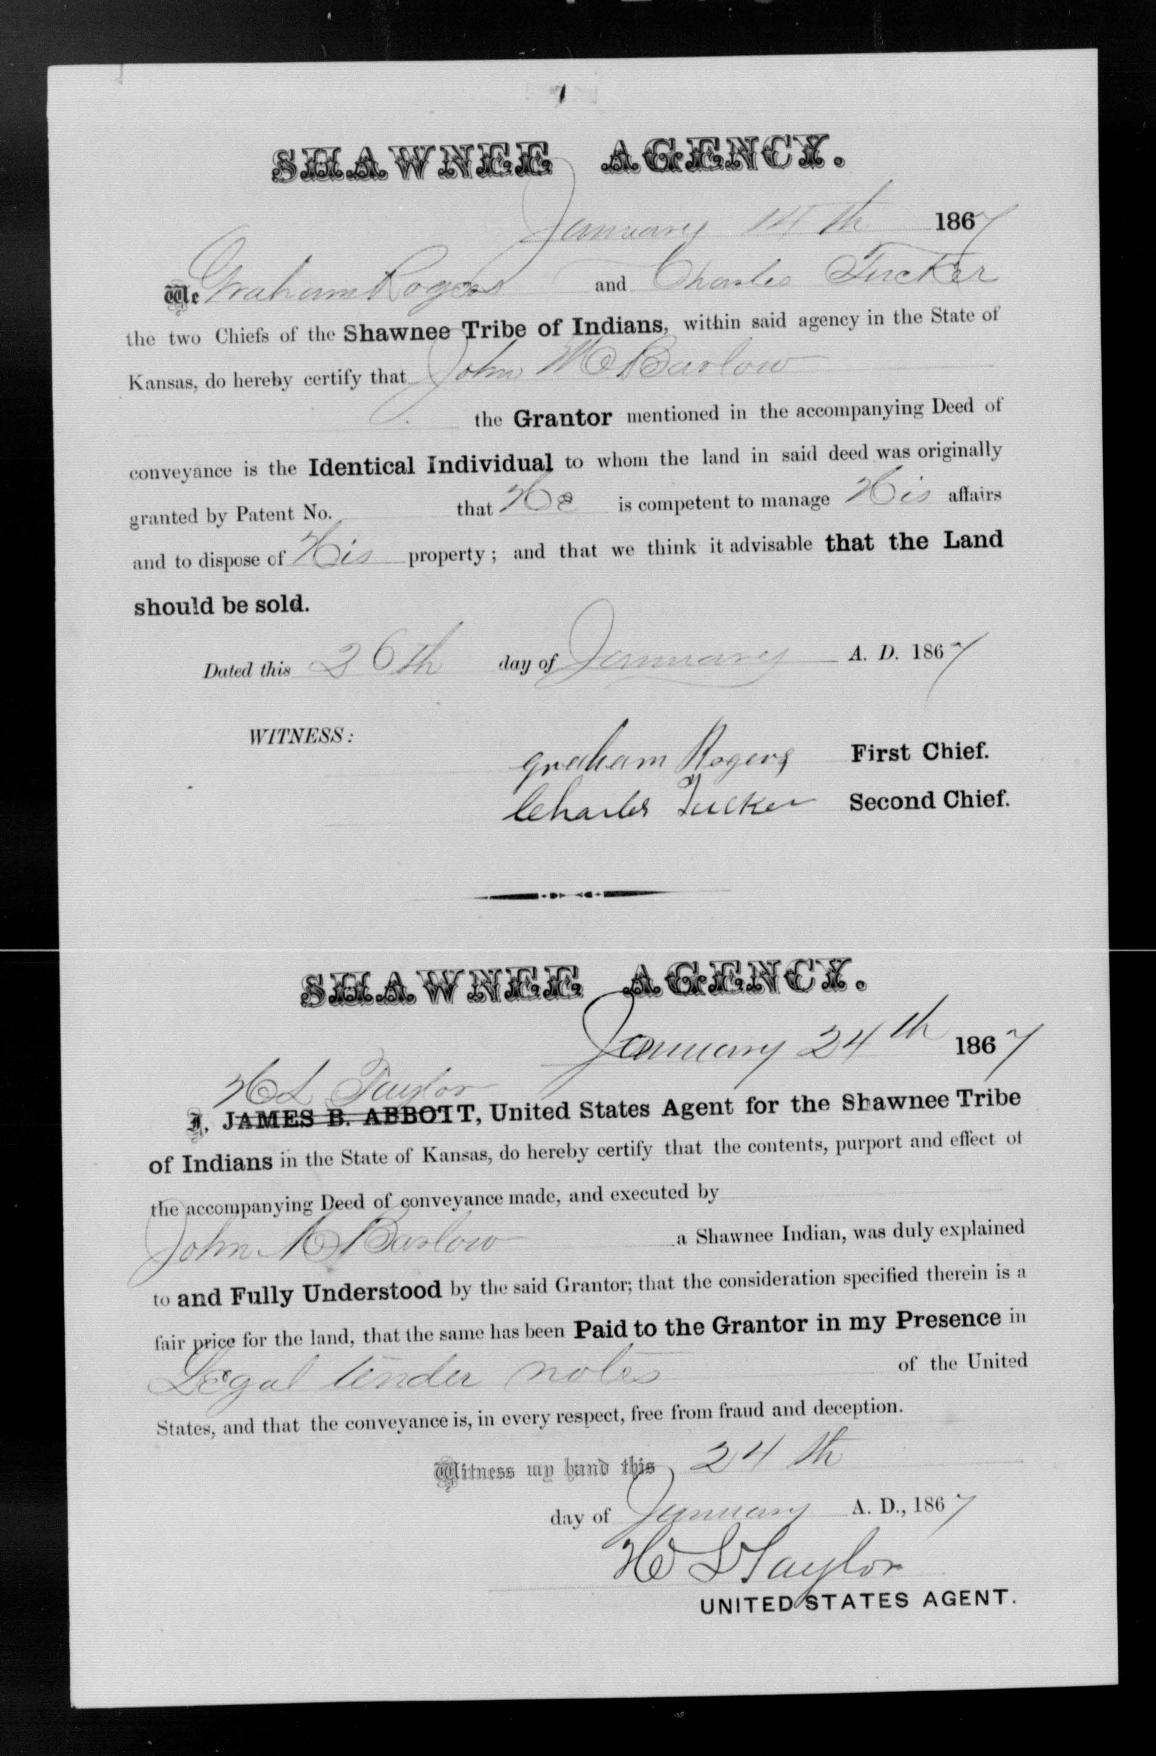 SHAWNEE AGENCY.
January 14th 1867
We Graham Rogers and Charles Tucker
the two Chiefs of the Shawnee Tribe of Indians, within said agency in the State of
Kansas, do hereby certify that John M Barlow
the Grantor mentioned in the accompanying Deed of
conveyance is the Identical Individual to whom the land in said deed was originally
granted by Patent No. that He is competent to manage His affairs
and to dispose of His property; and that we think it advisable that the Land
should be sold.
Dated this 26th day of January A. D. 1867
WITNESS:
Graham Rogers First Chief.
Charles Tucker Second Chief.
SHAWNEE AGENCY.
January 24th 1867
H L Taylor
I, JAMES B. ABBOTT, United States Agent for the Shawnee Tribe
of Indians in the State of Kansas, do hereby certify that the contents, purport and effect of
the accompanying Deed of conveyance made, and executed by
John M Barlow a Shawnee Indian, was duly explained
to and Fully Understood by the said Grantor; that the consideration specified therein is a
fair price for the land, that the same has been Paid to the Grantor in my Presence in
Legal tender notes of the United
States, and that the conveyance is, in every respect, free from fraud and deception.
Witness my hand this 24th
day of January A. D., 1867
H L Taylor
UNITED STATES AGENT.